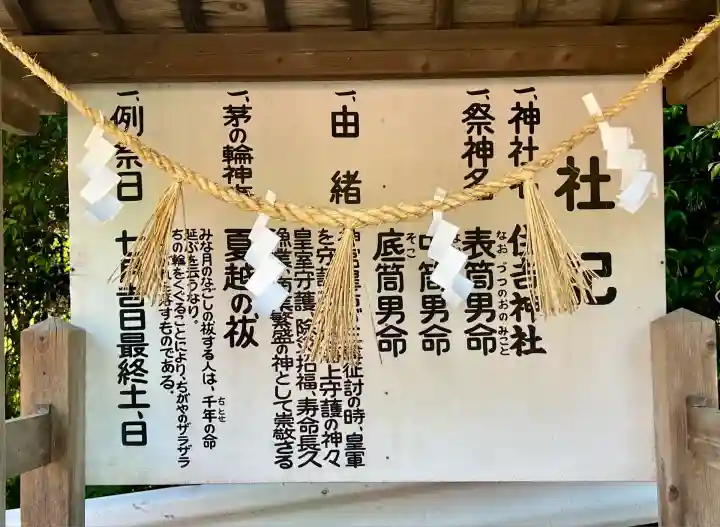 社記
一、神社 住吉神社
一、祭神名 表筒男命
なお づつのおのみこと
中筒男命
底筒男命
そこ
一、由緒
征討の時、皇軍
を守護 上守護の神々
皇室守護、除 招福、寿命長久
漁業 繁盛の神として崇敬さる
一、茅の輪神
夏越の祓
みな月のなごしの祓する人は、千年の命
ちとせ
延ぶを云うなり。
ちの輪をくぐることにより、ちがやのザラザラ
なすものである。
一、例祭日 七月 日最終土、日